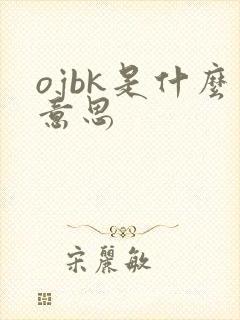 ojbk是什麽
意思
宋麗敏